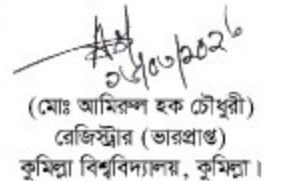 (মোঃ আমিরুল হক চৌধুরী)
রেজিস্ট্রার (ভারপ্রাপ্ত)
কুমিল্লা বিশ্ববিদ্যালয়, কুমিল্লা।